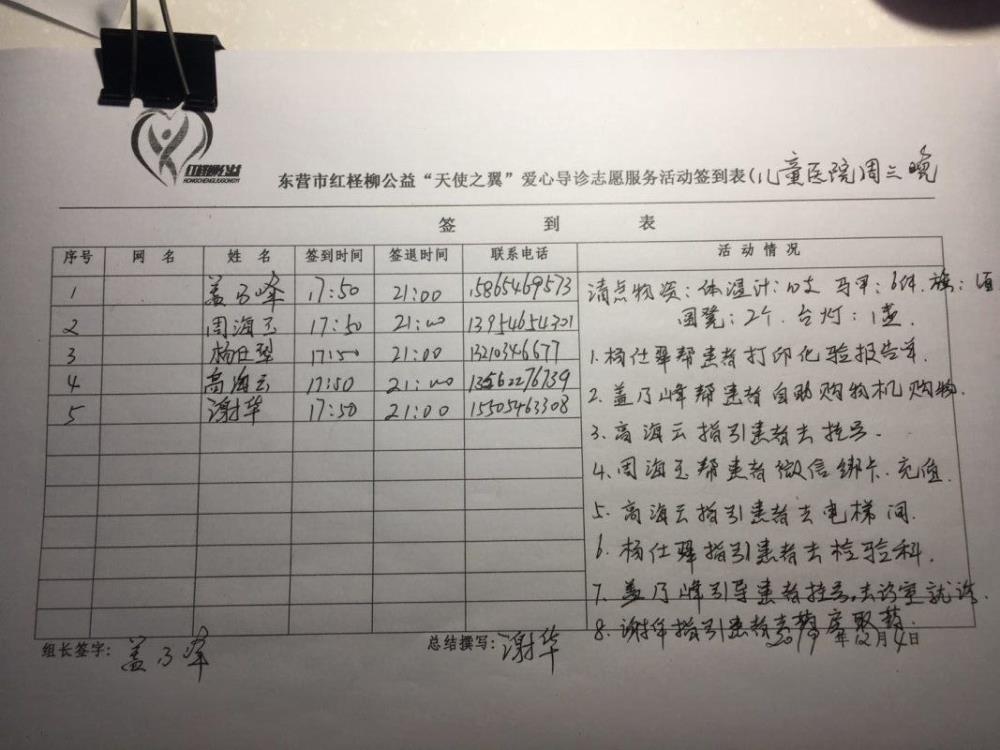 红柽柳公益
HONGCHENGLIUGONGYI
东营市红柽柳公益“天使之翼”爱心导诊志愿服务活动签到表(儿童医院)周三晚
签 到 表
序号 网 名 姓 名 签到时间 签退时间 联系电话 活 动 情 况
1 盖乃峰 17:50 21:00 15865469573
2 周海玉 17:50 21:00 13954654301
3 杨仕驿 17:50 21:00 13210346677
4 高海云 17:50 21:00 13562276739
5 谢华 17:50 21:00 15505463308
清点物资:体温计:10支 马甲:6件.旗:1面
圆凳:2个.台灯:1盏.
1.杨仕驿帮患者打印化验报告单.
2.盖乃峰帮患者自助购物机购物.
3.高海云指引患者去挂号.
4.周海玉帮患者微信绑卡.充值.
5.高海云指引患者去电梯间.
6.杨仕驿指引患者去检验科.
7.盖乃峰引导患者挂号,去诊室就诊.
8.谢华指引患者去药房取药.
组长签字:盖乃峰 总结撰写:谢华 2019年12月4日